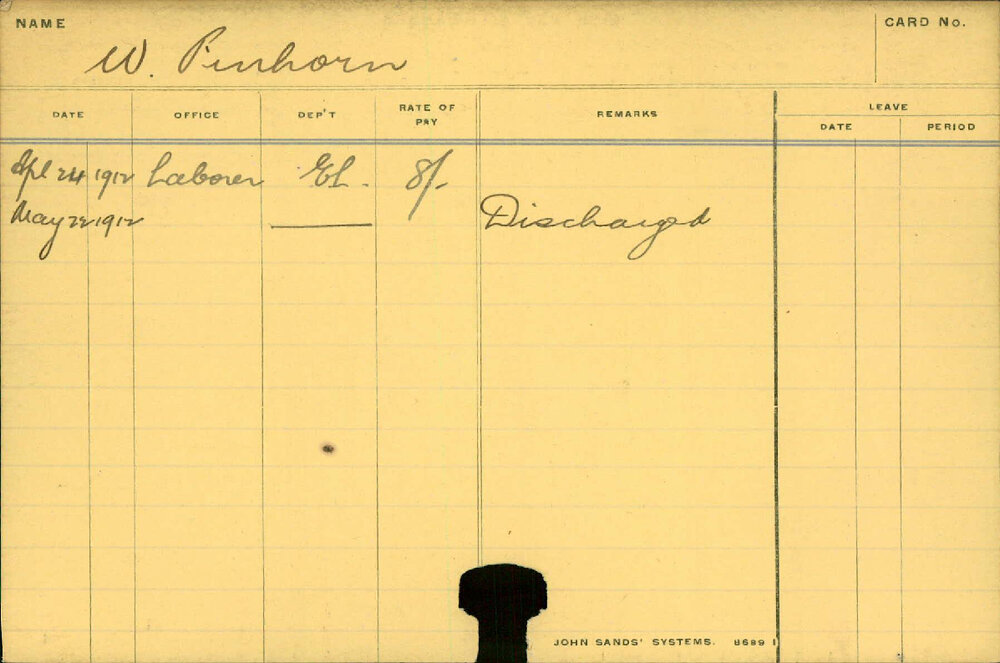 NAME
CARD No.
W. Pinhorn
DATE OFFICE DEP'T RATE OF PAY REMARKS LEAVE
DATE PERIOD
Apl 24 1912 Laborer EL. 8/-
May 22 1912 Discharged
JOHN SANDS' SYSTEMS. 8689